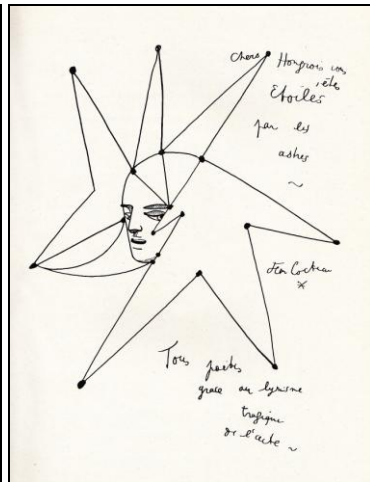 Chers Hongrois vous
êtes
Etoiles
par les
astres
Jean Cocteau
Tous poètes
grace au lyrisme
tragique
de l'acte